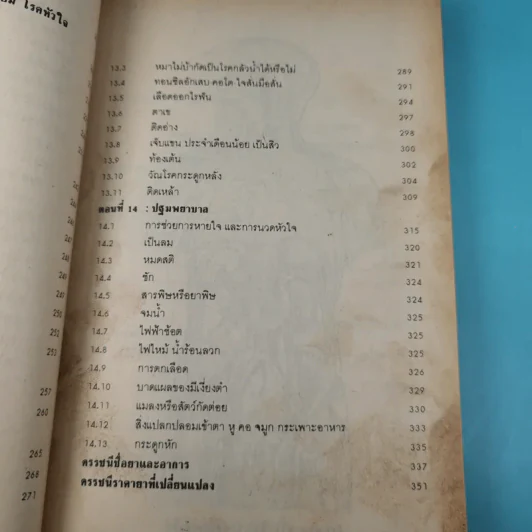 โรคหัวใจ
241
250
252
253
257
260
265
268
271
13.3 หมาไม่บ้ากัดเป็นโรคกลัวน้ำได้หรือไม่ 289
13.4 ทอนซิลอักเสบ คอโต ใจสั่นมือสั่น 291
13.5 เลือดออกไรฟัน 294
13.6 ตาเข 297
13.7 ติดอ่าง 298
13.8 เจ็บแขน ประจำเดือนน้อย เป็นสิว 300
13.9 ท้องเต้น 302
13.10 วัณโรคกระดูกหลัง 304
13.11 ติดเหล้า 309
ตอนที่ 14 : ปฐมพยาบาล
14.1 การช่วยการหายใจ และการนวดหัวใจ 315
14.2 เป็นลม 320
14.3 หมดสติ 321
14.4 ชัก 324
14.5 สารพิษหรือยาพิษ 324
14.6 จมน้ำ 325
14.7 ไฟฟ้าช้อต 325
14.8 ไฟไหม้ น้ำร้อนลวก 325
14.9 การตกเลือด 326
14.10 บาดแผลของมีเงี่ยงตำ 329
14.11 แมลงหรือสัตว์กัดต่อย 330
14.12 สิ่งแปลกปลอมเข้าตา หู คอ จมูก กระเพาะอาหาร 333
14.13 กระดูกหัก 335
ดรรชนีชื่อยาและอาการ 337
ดรรชนีราคายาที่เปลี่ยนแปลง 351